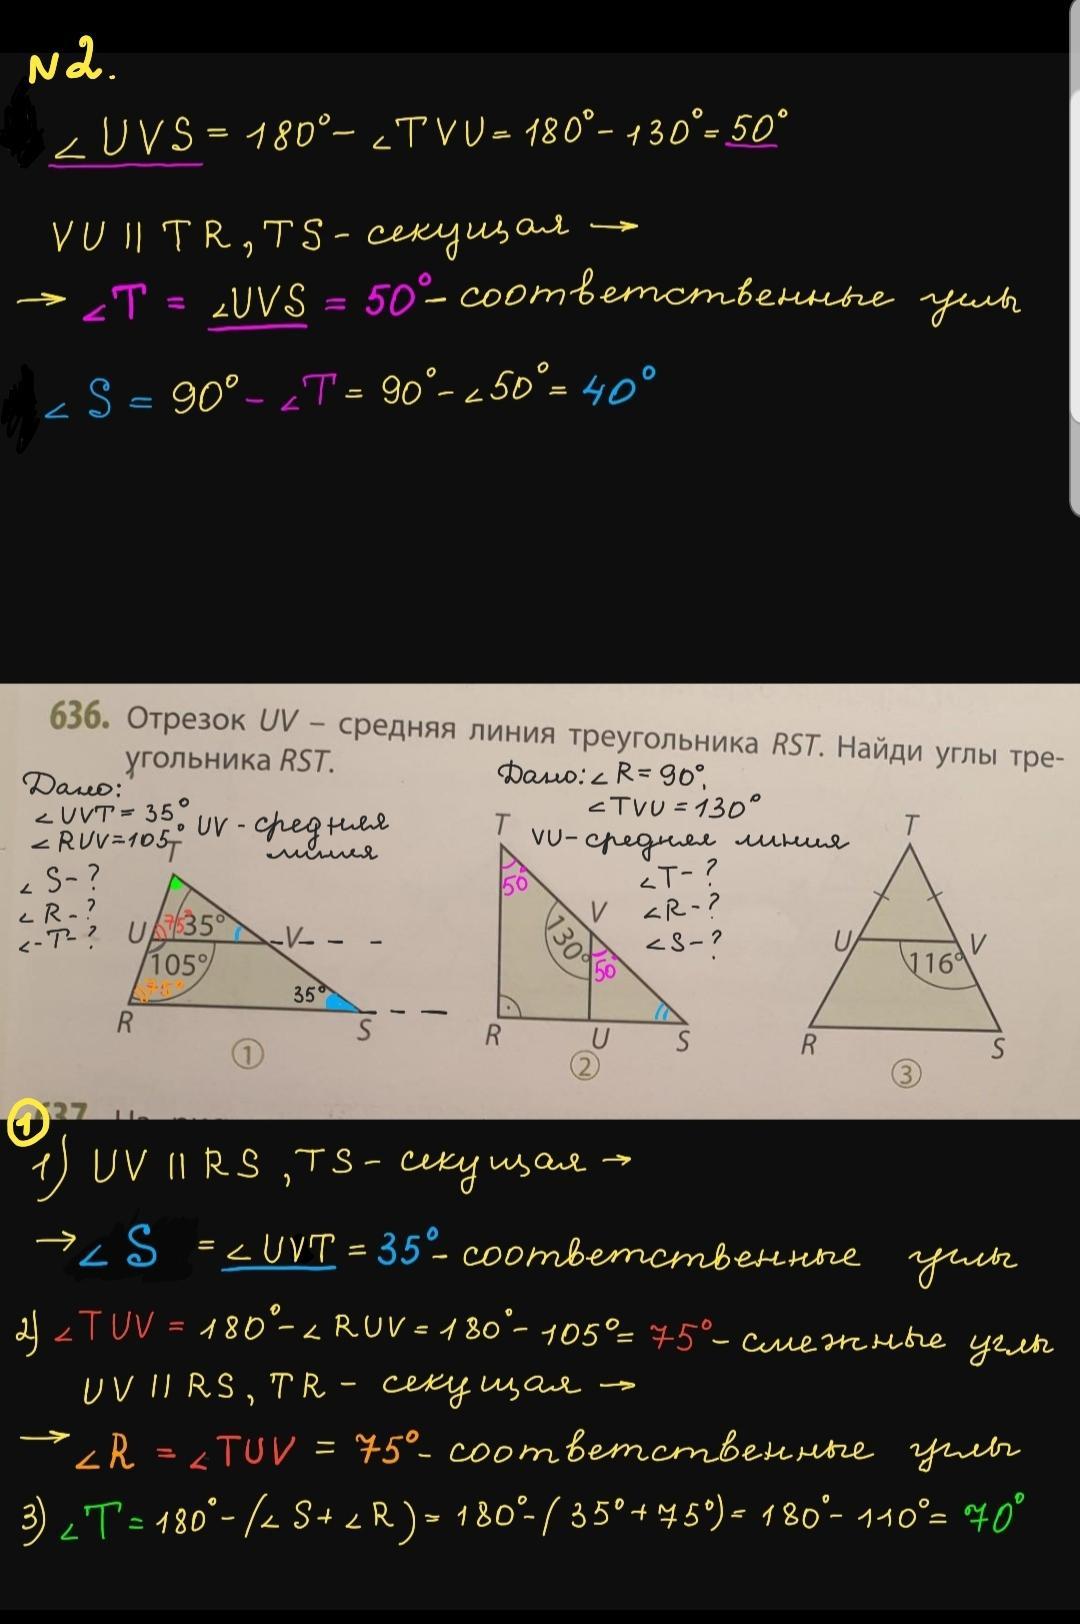 N2.
∠UVS = 180° - ∠TVU = 180° - 130° = 50°
VU || TR, TS - секущая →
→ ∠T = ∠UVS = 50° - соответственные углы
∠S = 90° - ∠T = 90° - ∠50° = 40°
636. Отрезок UV – средняя линия треугольника RST. Найди углы тре-
угольника RST.
Дано:
∠UVT = 35°
∠RUV=105° UV - средняя
линия
∠S - ?
∠R - ?
∠-T- ?
T
U 75° 35° V
105°
75° 35°
R S
1
Дано: ∠R = 90°,
∠TVU = 130°
VU - средняя линия
∠T - ?
∠R - ?
∠S - ?
T
50°
V
130°
50°
R U S
2
T
U V
116°
R S
3
637
1
1) UV || RS, TS - секущая →
→ ∠S = ∠UVT = 35° - соответственные углы
2) ∠TUV = 180° - ∠RUV = 180° - 105° = 75° - смежные углы
UV || RS, TR - секущая →
→ ∠R = ∠TUV = 75° - соответственные углы
3) ∠T = 180° - (∠S + ∠R) = 180° - (35° + 75°) = 180° - 110° = 70°